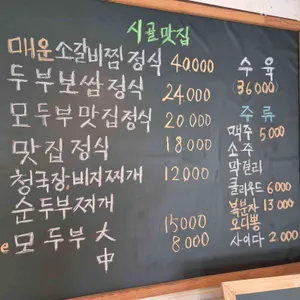 시골맛집
매운소갈비찜정식 40000
두부보쌈정식 24000
모두부맛집정식 20.000
맛집정식 18.000
청국장,비지찌개 12000
순두부찌개
모두부 大 15000
中 8.000
수육
(36000)
주류
맥주 5000
소주
막걸리
클라우드 6000
복분자 13000
오디뽕
사이다 2000